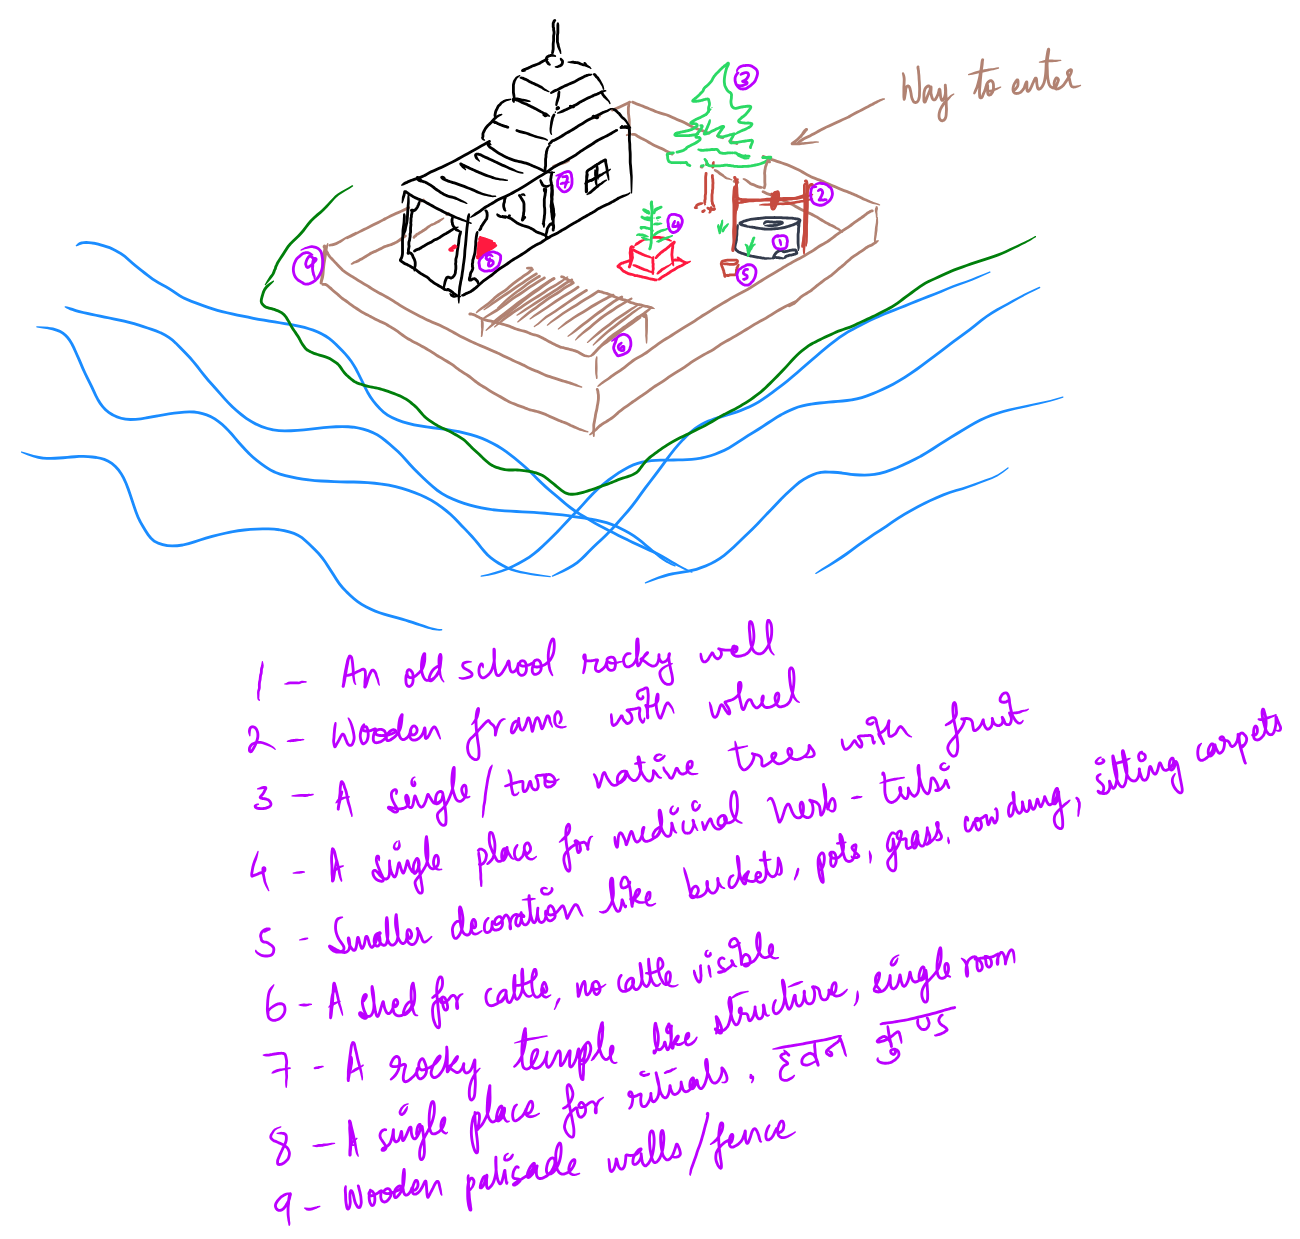 Way to enter
3
7
2
4
1
9
8
5
6
1 - An old school rocky well
2 - Wooden frame with wheel
3 - A single/two native trees with fruit
4 - A single place for medicinal herb - tulsi
5 - Smaller decoration like buckets, pots, grass, cow dung, sitting carpets
6 - A shed for cattle, no cattle visible
7 - A rocky temple like structure, single room
8 - A single place for rituals, हवन कुण्ड
9 - Wooden palisade walls/fence